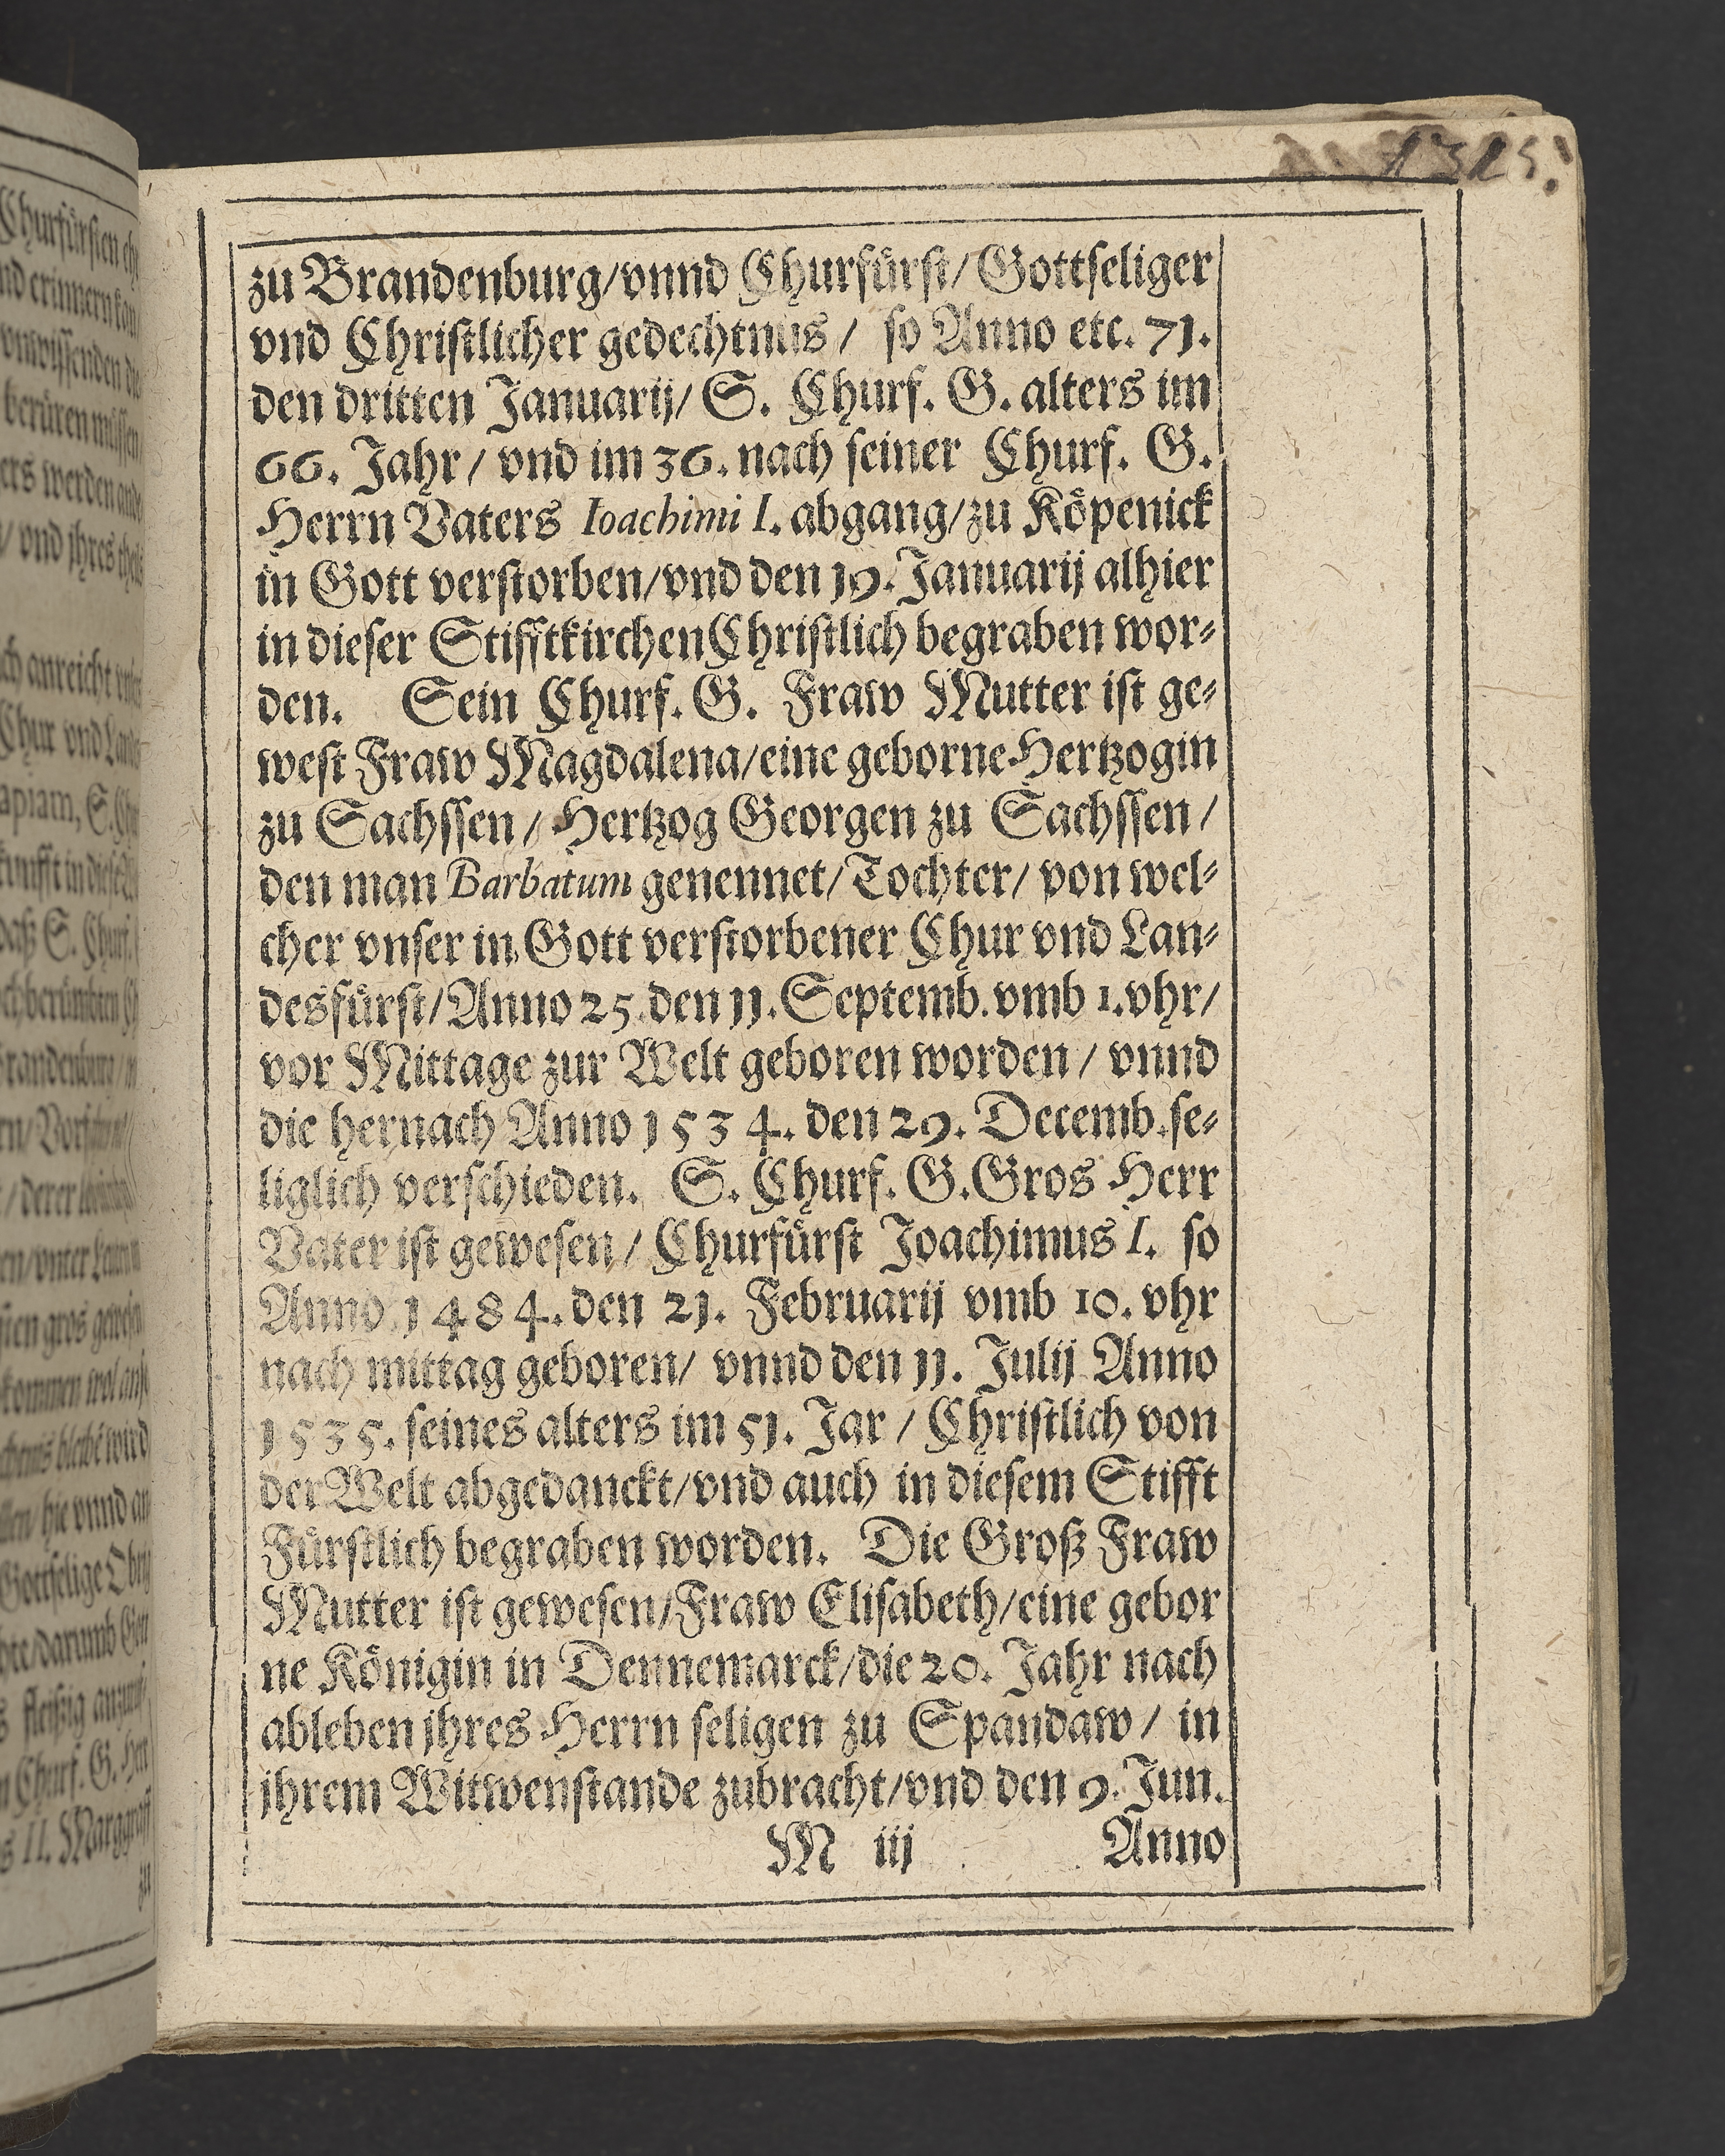 zu Brandenburg/vnnd Churfürst/Gottseliger
vnd Christlicher gedechtnus / so Anno etc. 71.
den dritten Januarij/ S. Churf. G. alters im
66. Jahr / vnd im 36. nach seiner Churf. G.
Herrn Vaters Ioachimi I. abgang/zu Köpenick
in Gott verstorben/vnd den 19. Januarij alhier
in dieser Stifftkirchen Christlich begraben wor⸗
den. Sein Churf. G. Fraw Mutter ist ge⸗
west Fraw Magdalena/eine geborne Hertzogin
zu Sachssen / Hertzog Georgen zu Sachssen /
den man Barbatum genennet/Tochter/ von wel⸗
cher vnser in Gott verstorbener Chur vnd Lan⸗
desfürst/Anno 25. den 11. Septemb. vmb 1. vhr/
vor Mittage zur Welt geboren worden / vnnd
die hernach Anno 1534. den 29. Decemb. se⸗
liglich verschieden. S. Churf. G. Gros Herr
Vater ist gewesen / Churfürst Joachimus I. so
Anno 1484. den 21. Februarij vmb 10. vhr
nach mittag geboren/ vnnd den 11. Julij Anno
1535. seines alters im 51. Jar / Christlich von
der Welt abgedanckt/vnd auch in diesem Stifft
Fürstlich begraben worden. Die Groß Fraw
Mutter ist gewesen/Fraw Elisabeth/eine gebor
ne Königin in Dennemarck/die 20. Jahr nach
ableben jhres Herrn seligen zu Spandaw / in
jhrem Witwenstande zubracht/vnd den 9. Jun.
M iij Anno